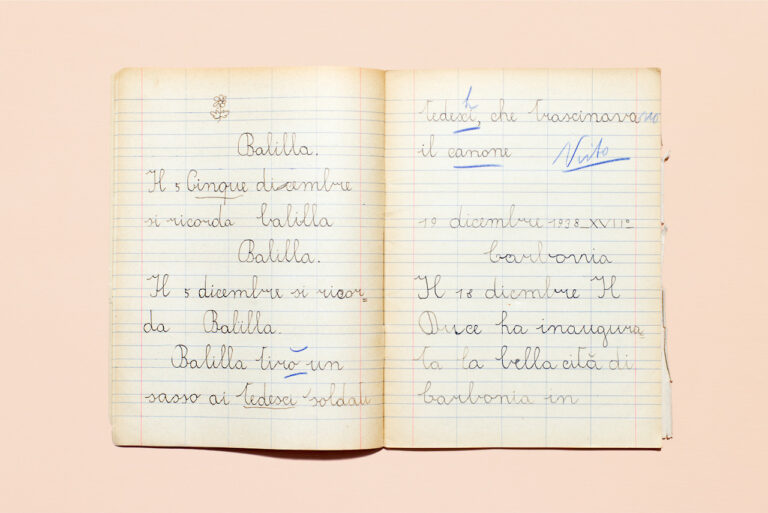 Balilla.
Il 5 Cinque dicembre
si ricorda balilla
Balilla.
Il 5 dicembre si ricor=
da Balilla.
Balilla tirò un
sasso ai tedesci soldati
tedesci, che trascinavano
h
il canone Visto
19 dicembre 1938_XVII°
Carbonia
Il 18 dicembre Il
Duce ha inaugura
ta la bella cità di
Carbonia in